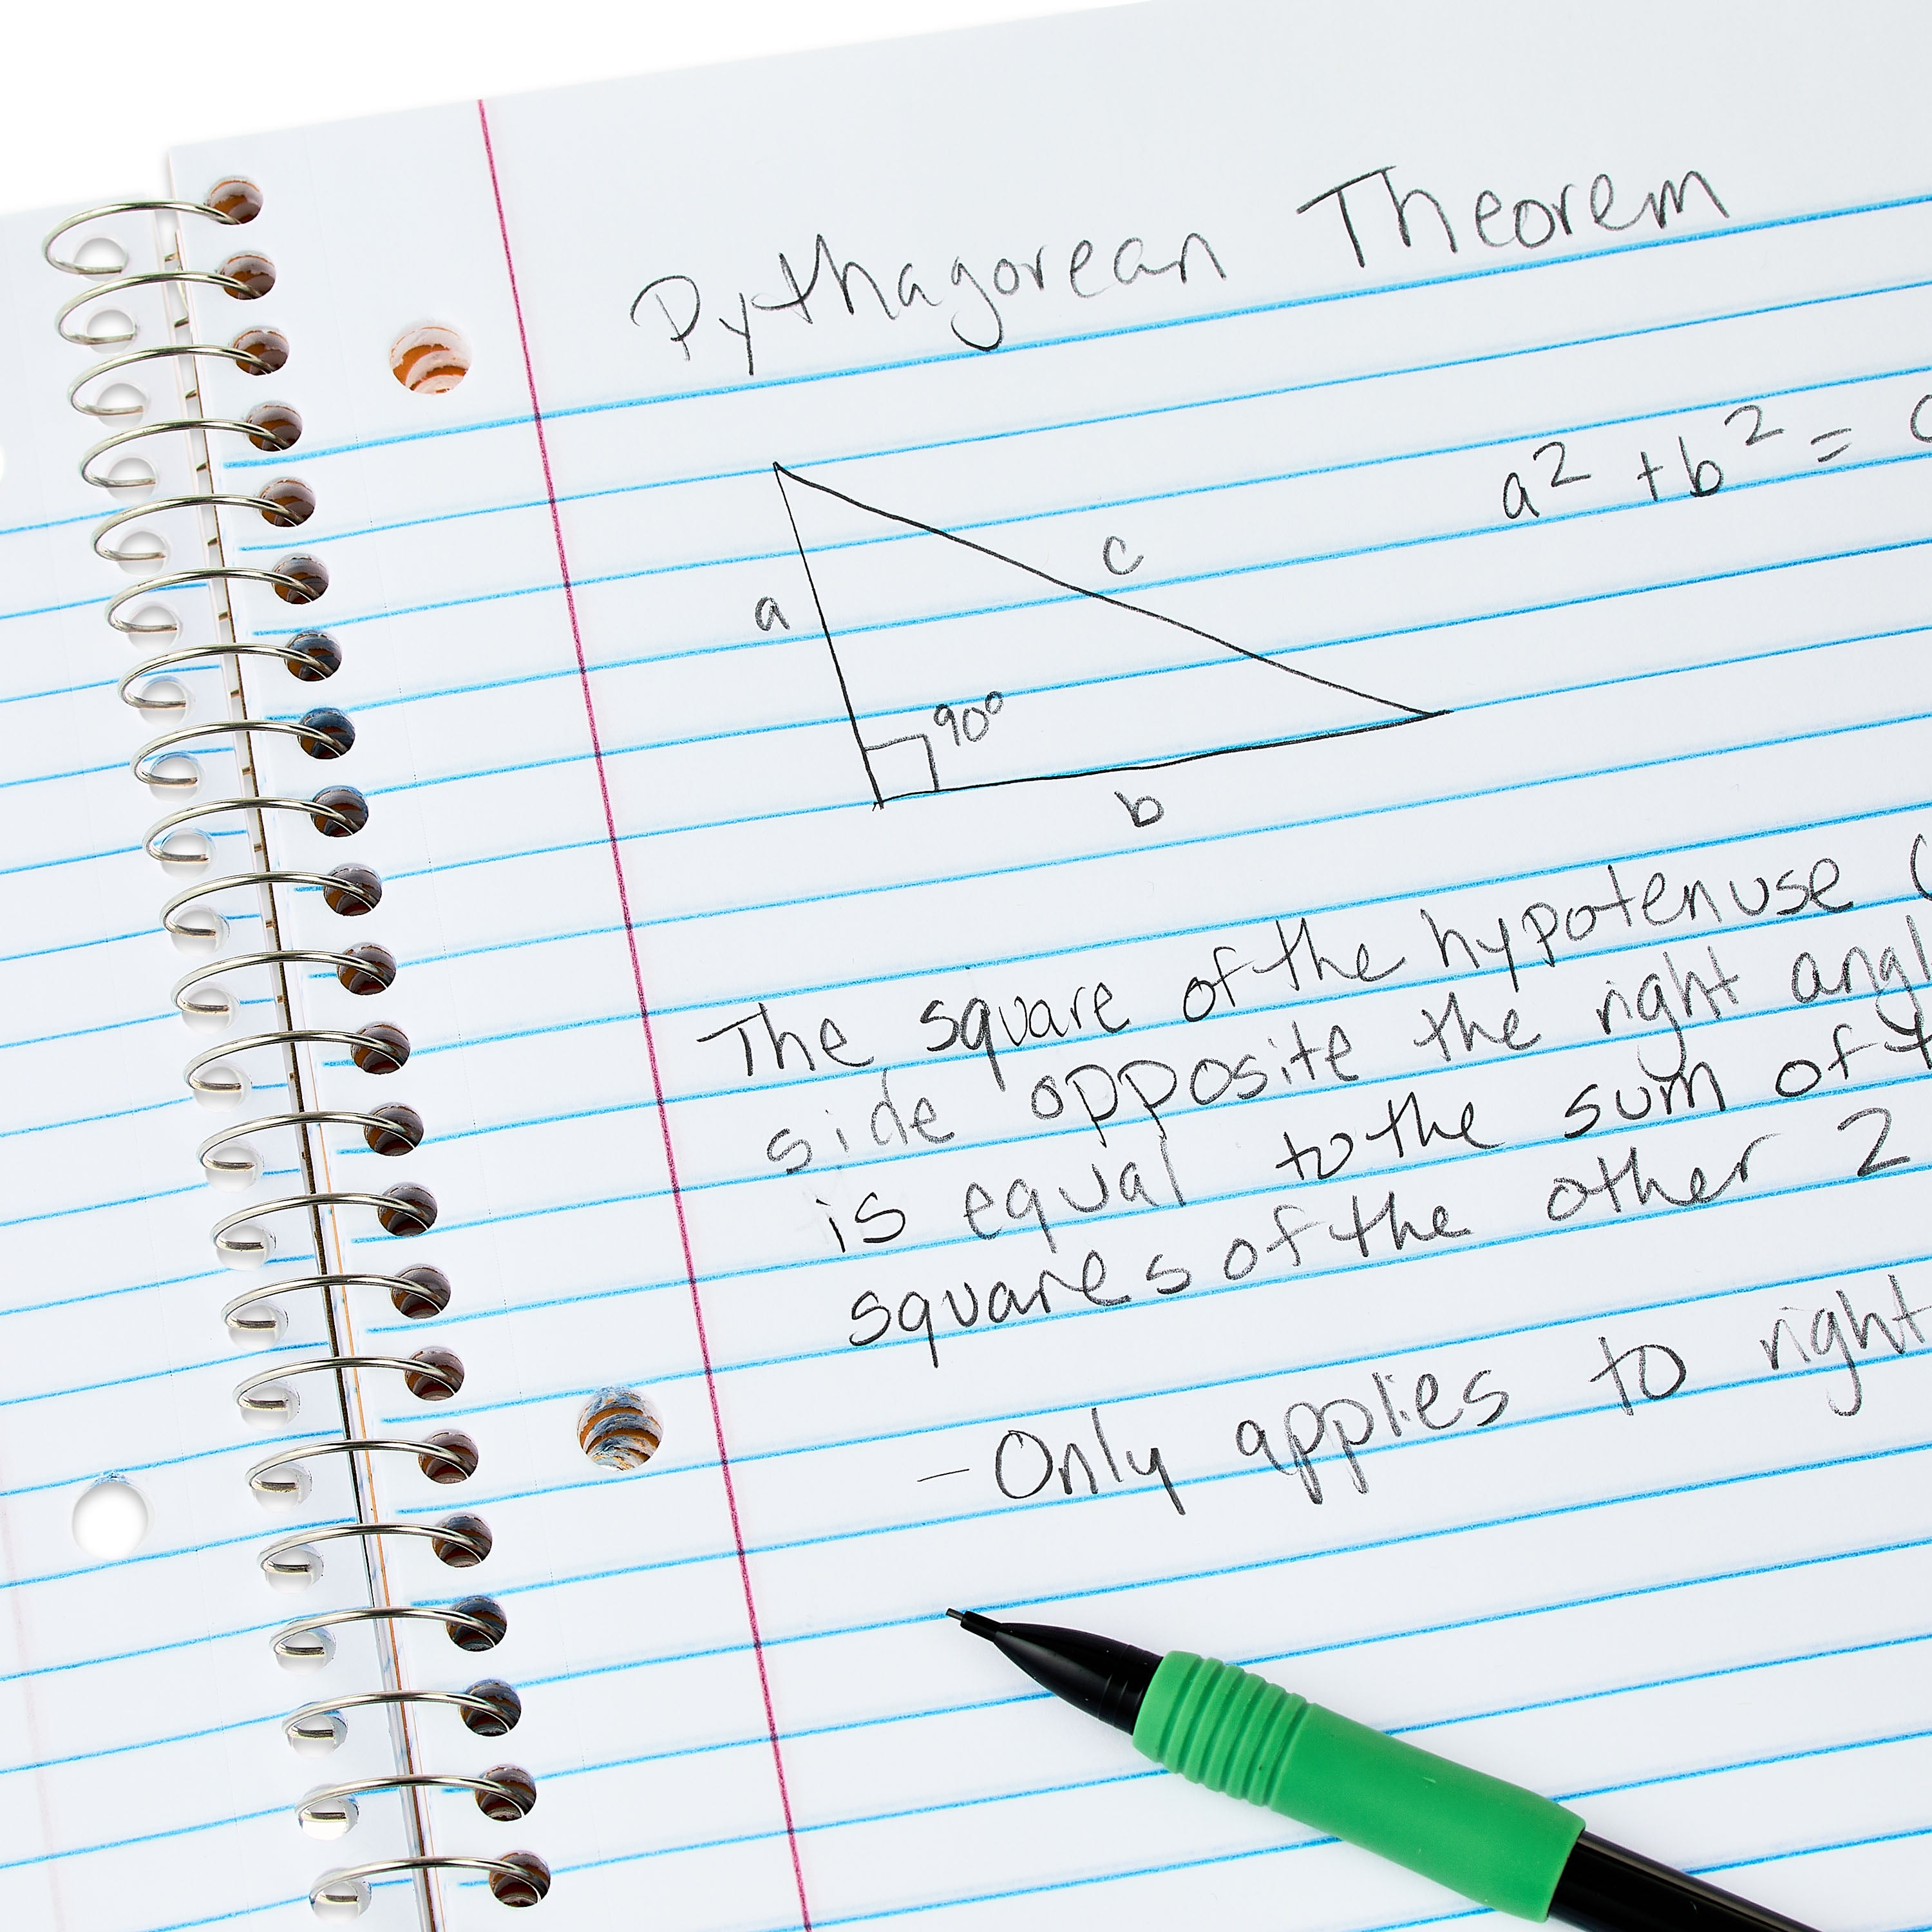 Pythagorean Theorem
a² + b² =
a
c
90°
b
The square of the hypotenuse (
side opposite the right
is equal to the sum of
squares of the other 2
- Only applies to right